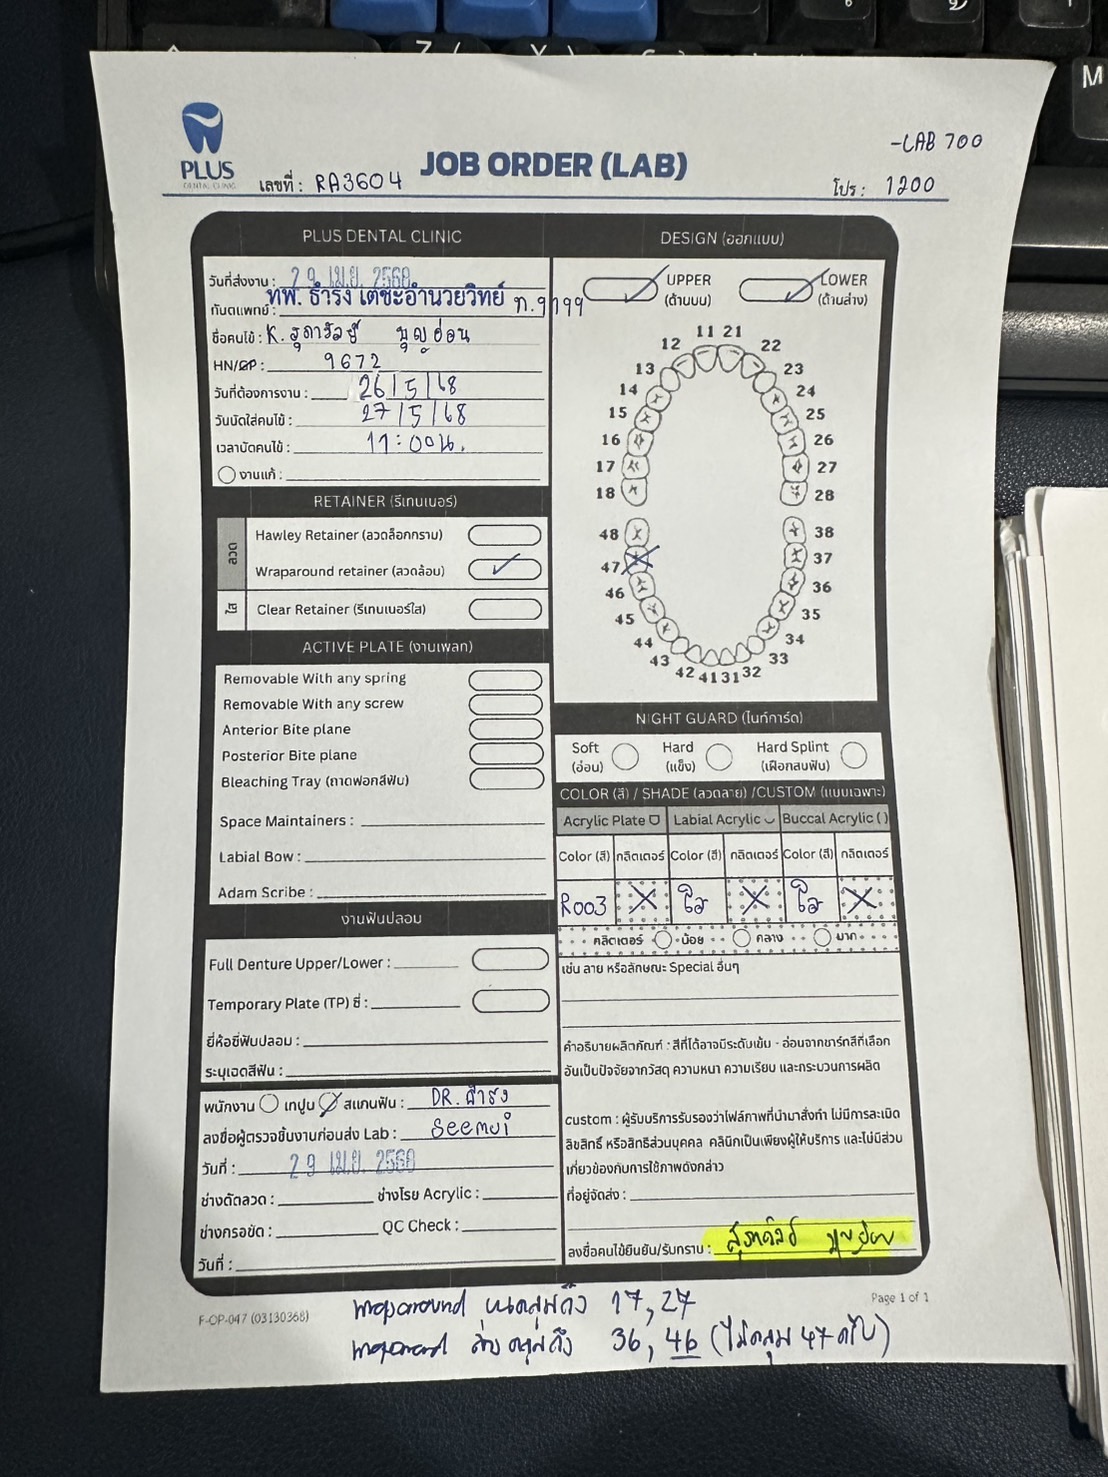 PLUS
DENTAL CLINIC
JOB ORDER (LAB)
-LAB 700
เลขที่ : RA3604
โปร : 1200
PLUS DENTAL CLINIC
วันที่ส่งงาน : 29 เม.ย. 2568
ทันตแพทย์ : ทพ. ธำรง เตชะอำนวยวิทย์ ท.9199
ชื่อคนไข้ : K.
HN/CP : 9672
วันที่ต้องการงาน : 26/5/68
วันนัดใส่คนไข้ : 27/5/68
เวลานัดคนไข้ : 11:00น.
งานแก้ :
RETAINER (รีเทนเนอร์)
ลวด
Hawley Retainer (ลวดล็อกกราม)
Wraparound retainer (ลวดล้อม)
ใส
Clear Retainer (รีเทนเนอร์ใส)
ACTIVE PLATE (งานเพลท)
Removable With any spring
Removable With any screw
Anterior Bite plane
Posterior Bite plane
Bleaching Tray (ถาดฟอกสีฟัน)
Space Maintainers :
Labial Bow :
Adam Scribe :
งานฟันปลอม
Full Denture Upper/Lower :
Temporary Plate (TP) ซี่ :
ยี่ห้อซี่ฟันปลอม :
ระบุเฉดสีฟัน :
พนักงาน เทปูน สแกนฟัน : DR. ธำรง
ลงชื่อผู้ตรวจชิ้นงานก่อนส่ง Lab : Seemui
วันที่ : 29 เม.ย. 2568
ช่างดัดลวด : ช่างโรย Acrylic :
ช่างกรอขัด : QC Check :
วันที่ :
DESIGN (ออกแบบ)
UPPER
(ด้านบน)
LOWER
(ด้านล่าง)
11 21
12 22
13 23
14 24
15 25
16 26
17 27
18 28
48 38
47 37
46 36
45 35
44 34
43 33
42 41 31 32
NIGHT GUARD (ไนท์การ์ด)
Soft
(อ่อน)
Hard
(แข็ง)
Hard Splint
(เฝือกสบฟัน)
COLOR (สี) / SHADE (ลวดลาย) /CUSTOM (แบบเฉพาะ)
Acrylic Plate Labial Acrylic Buccal Acrylic ( )
Color (สี) กลิตเตอร์ Color (สี) กลิตเตอร์ Color (สี) กลิตเตอร์
R003 X ใส X ใส X
กลิตเตอร์ น้อย กลาง มาก
เช่น ลาย หรือลักษณะ Special อื่นๆ
คำอธิบายผลิตภัณฑ์ : สีที่ได้อาจมีระดับเข้ม - อ่อนจากชาร์ทสีที่เลือก
อันเป็นปัจจัยจากวัสดุ ความหนา ความเรียบ และกระบวนการผลิต
custom : ผู้รับบริการรับรองว่าไฟล์ภาพที่นำมาสั่งทำ ไม่มีการละเมิด
ลิขสิทธิ์ หรือสิทธิส่วนบุคคล คลินิกเป็นเพียงผู้ให้บริการ และไม่มีส่วน
เกี่ยวข้องกับการใช้ภาพดังกล่าว
ที่อยู่จัดส่ง :
ลงชื่อคนไข้ยืนยัน/รับทราบ :
F-OP-047 (03130368)
Page 1 of 1
wraparound บนคลุมถึง 17, 27
wraparound ล่างคลุมถึง 36, 46 (ไม่คลุม 47